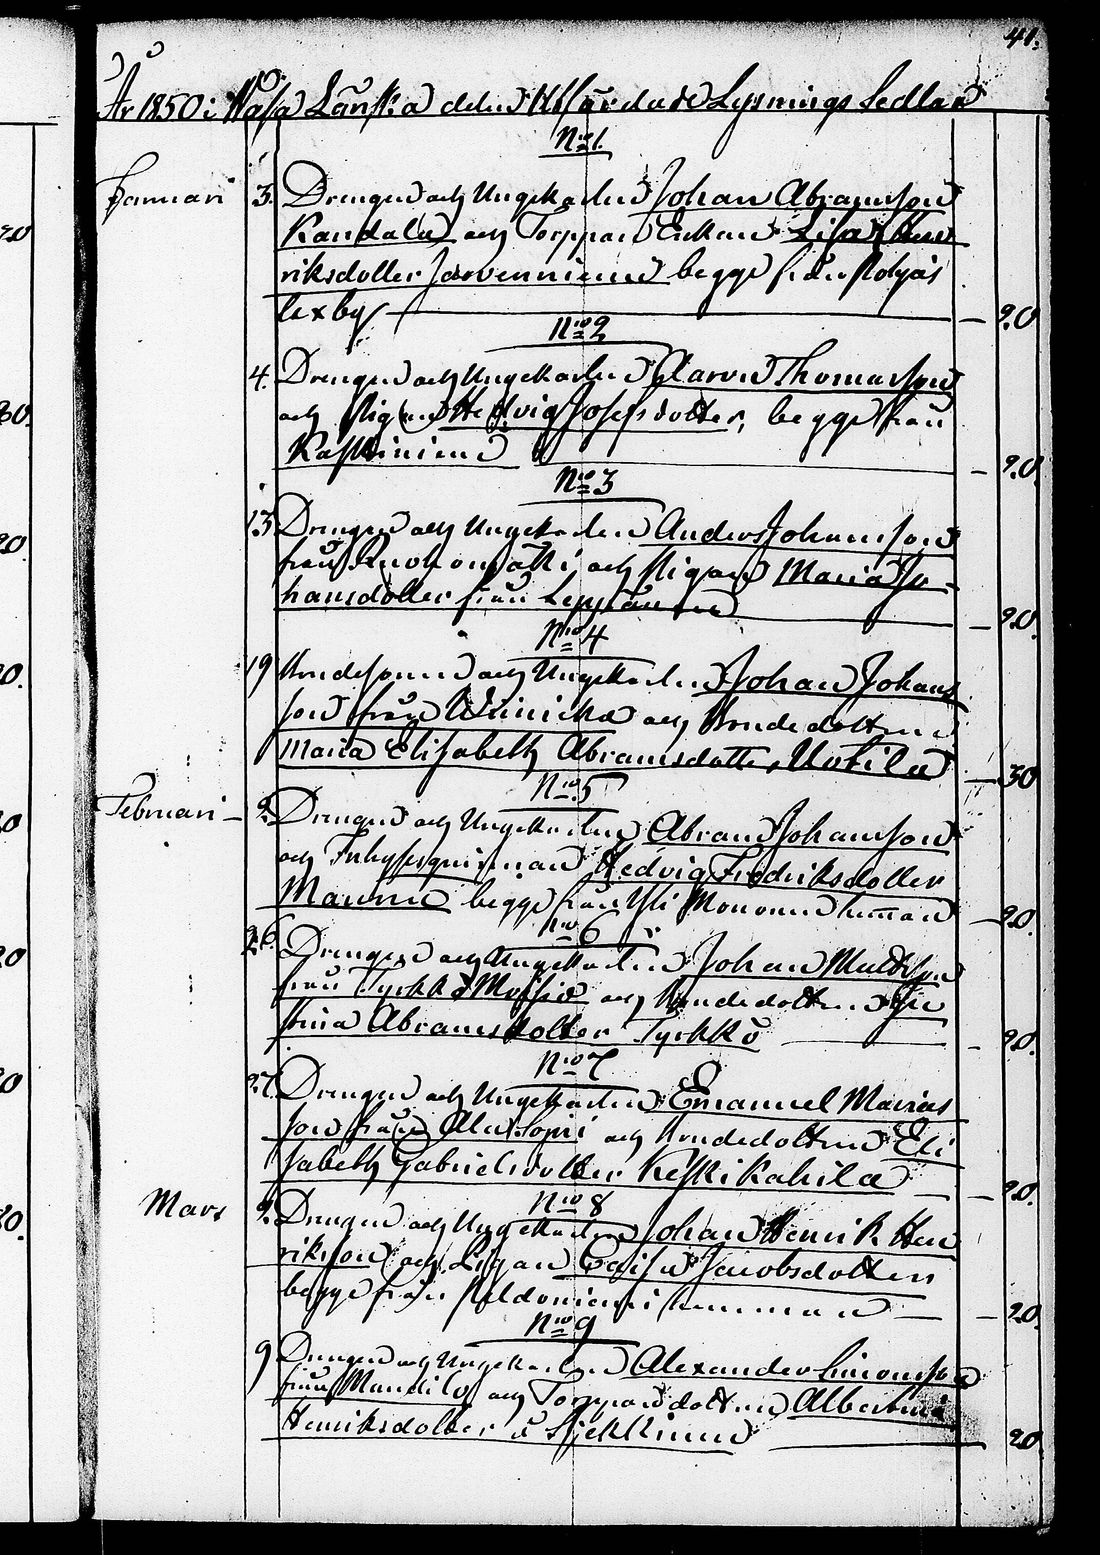 41.
År 1850 i Wasa Länska delen Utfärdade Lysnings Sedlar
No 1.
Januari 3. Drengen och Ungekarlen Johan Abramsson
Kandala och Torppare Enkan Lisa Hen
riksdotter Jarvenniemi begge från Pohjas
lax by 20
No 2
4. Drengen och Ungekarlen Aaron Thomasson
och Pigan Hedvig Josefsdotter, begge från
Kaskiniemi 20.
No 3
13 Drengen och Ungekarlen Anders Johansson
från och Pigan Maria Jo-
hansdotter från Leppänen 20.
No 4
19 Bondesonen och Ungekarlen Johan Johans
son från och Bondedottren
Maria Elisabeth Abramsdotter, 30
No 5
Februari 9. Drengen och Ungekarlen Abram Johansson
och Hedvig Fredriksdotter
begge från Yli Mononen hemman 20.
No 6
26. Drengen och Ungekarlen Johan Mattsson
från Tyrkkö och Bondedottren
Abramsdotter Tyrkkö 20.
No 7
27. Drengen och Ungekarlen Emanuel Marias
son från Ala Sopri och Bondedottren Eli
sabeth Gabrielsdotter Keskikahila 20.
No 8
Mars 9. Drengen och Ungekarlen Johan Henrik Hen
riksson och Pigan Caisa Jacobsdotter
begge från Peldoniemi hemman 20.
No 9
9 Drengen och Ungekarlen Alexander Simonsson
från Mandila och Torppare dottren Albertina
Henriksdotter 20